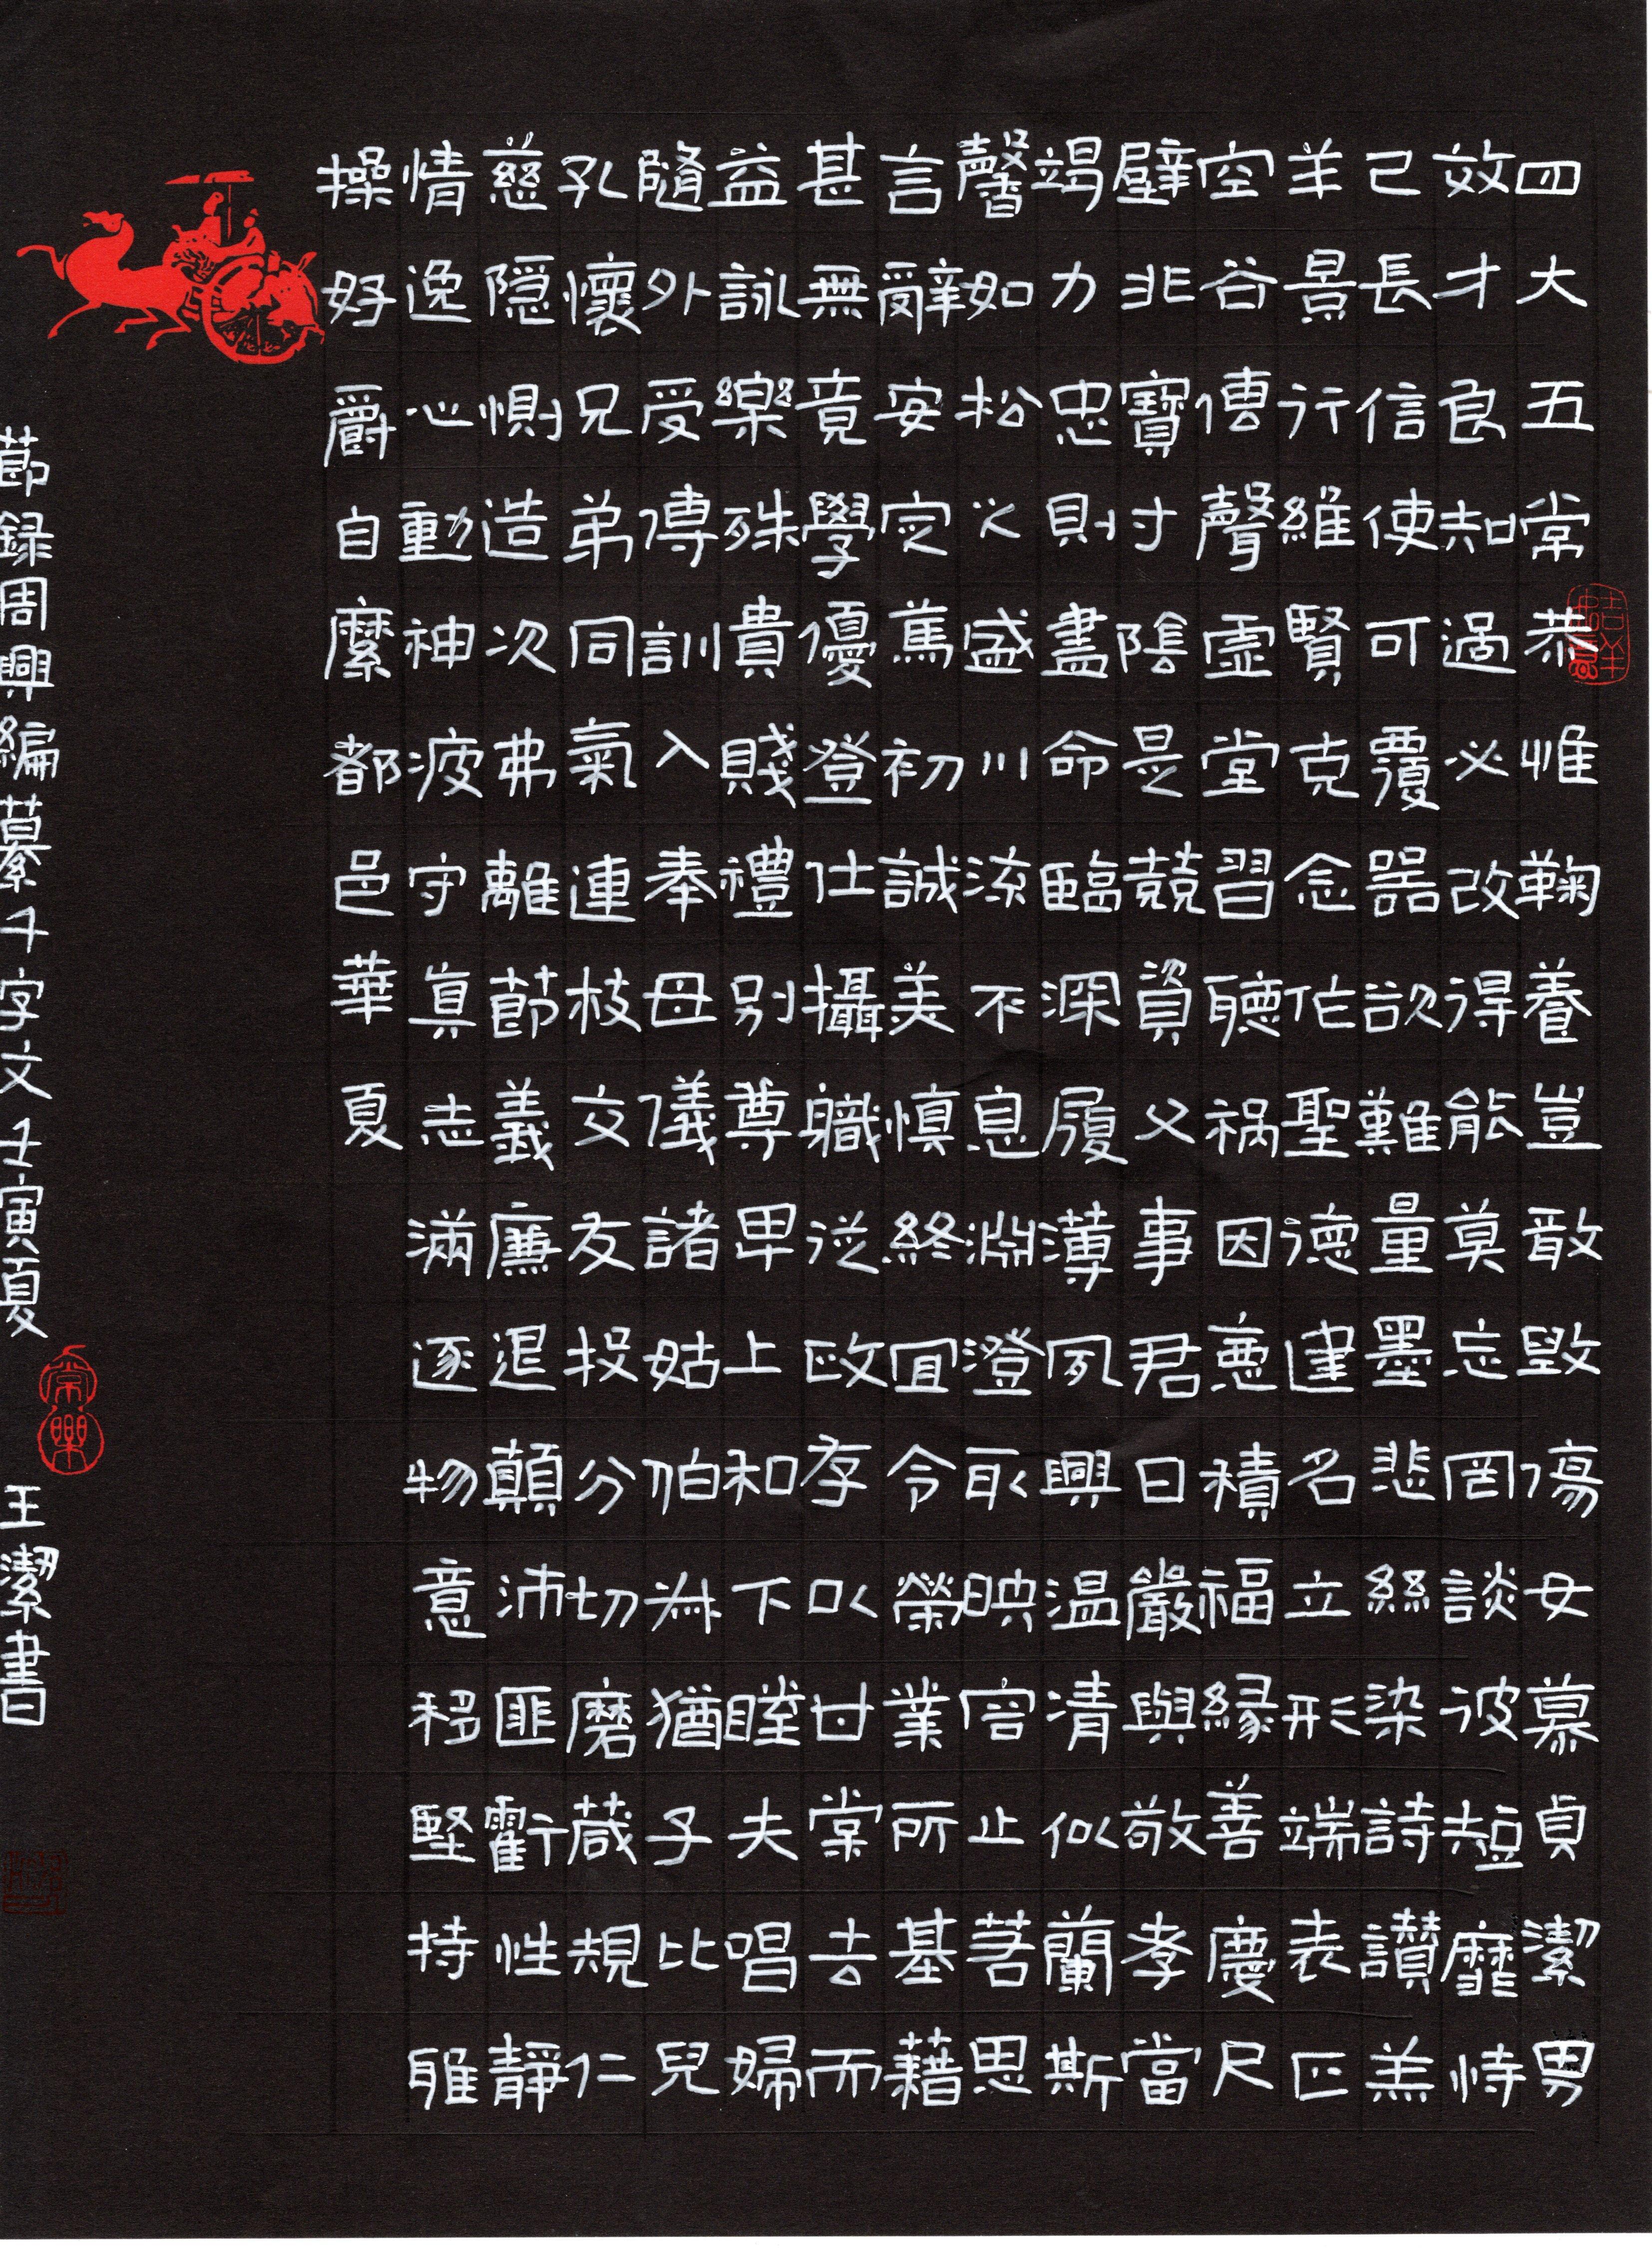 四大五常恭惟鞠養豈敢毀傷女慕貞潔男
效才良知過必改得能莫忘罔談彼短靡恃
己長信使可覆器欲難量墨悲絲染詩讃羔
羊景行維賢克念作聖德建名立形端表正
空谷傳聲虛堂習聽禍因惡積福緣善慶尺
璧非寶寸陰是競資父事君曰嚴與敬孝當
竭力忠則盡命臨深履薄夙興溫清似蘭斯
馨如松之盛川流不息淵澄取映容止若思
言辭安定篤初誠美慎終宜令榮業所基藉
甚無竟學優登仕攝職從政存以甘棠去而
益詠樂殊貴賤禮別尊卑上和下睦夫唱婦
隨外受傅訓入奉母儀諸姑伯叔猶子比兒
孔懷兄弟同氣連枝交友投分切磨箴規仁
慈隱惻造次弗離節義廉退顛沛匪虧性靜
情逸心動神疲守真志滿逐物意移堅持雅
操好爵自縻都邑華夏
節錄周興編纂千字文壬寅夏
常樂
王潔書